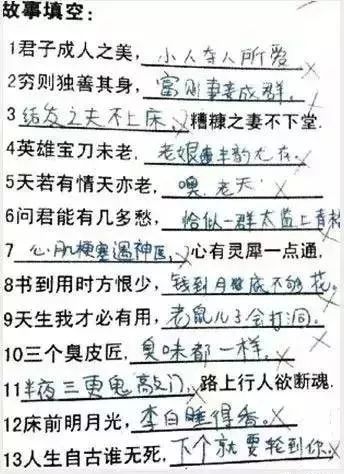 故事填空：
1君子成人之美，小人夺人所爱
2穷则独善其身，富则妻妾成群。
3结发之夫不上床，糟糠之妻不下堂.
4英雄宝刀未老，老娘半韵尤存。
5天若有情天亦老，噢，老天
6问君能有几多愁，恰似一群太监上青楼
7 心肌梗塞遇神医，心有灵犀一点通，
8书到用时方恨少，钱到月底不够花。
9天生我才必有用，老鼠儿子会打洞.
10三个臭皮匠，臭味都一样。
11半夜三更鬼敲门，路上行人欲断魂.
12床前明月光，李白睡得香。
13人生自古谁无死，下个就要轮到你。